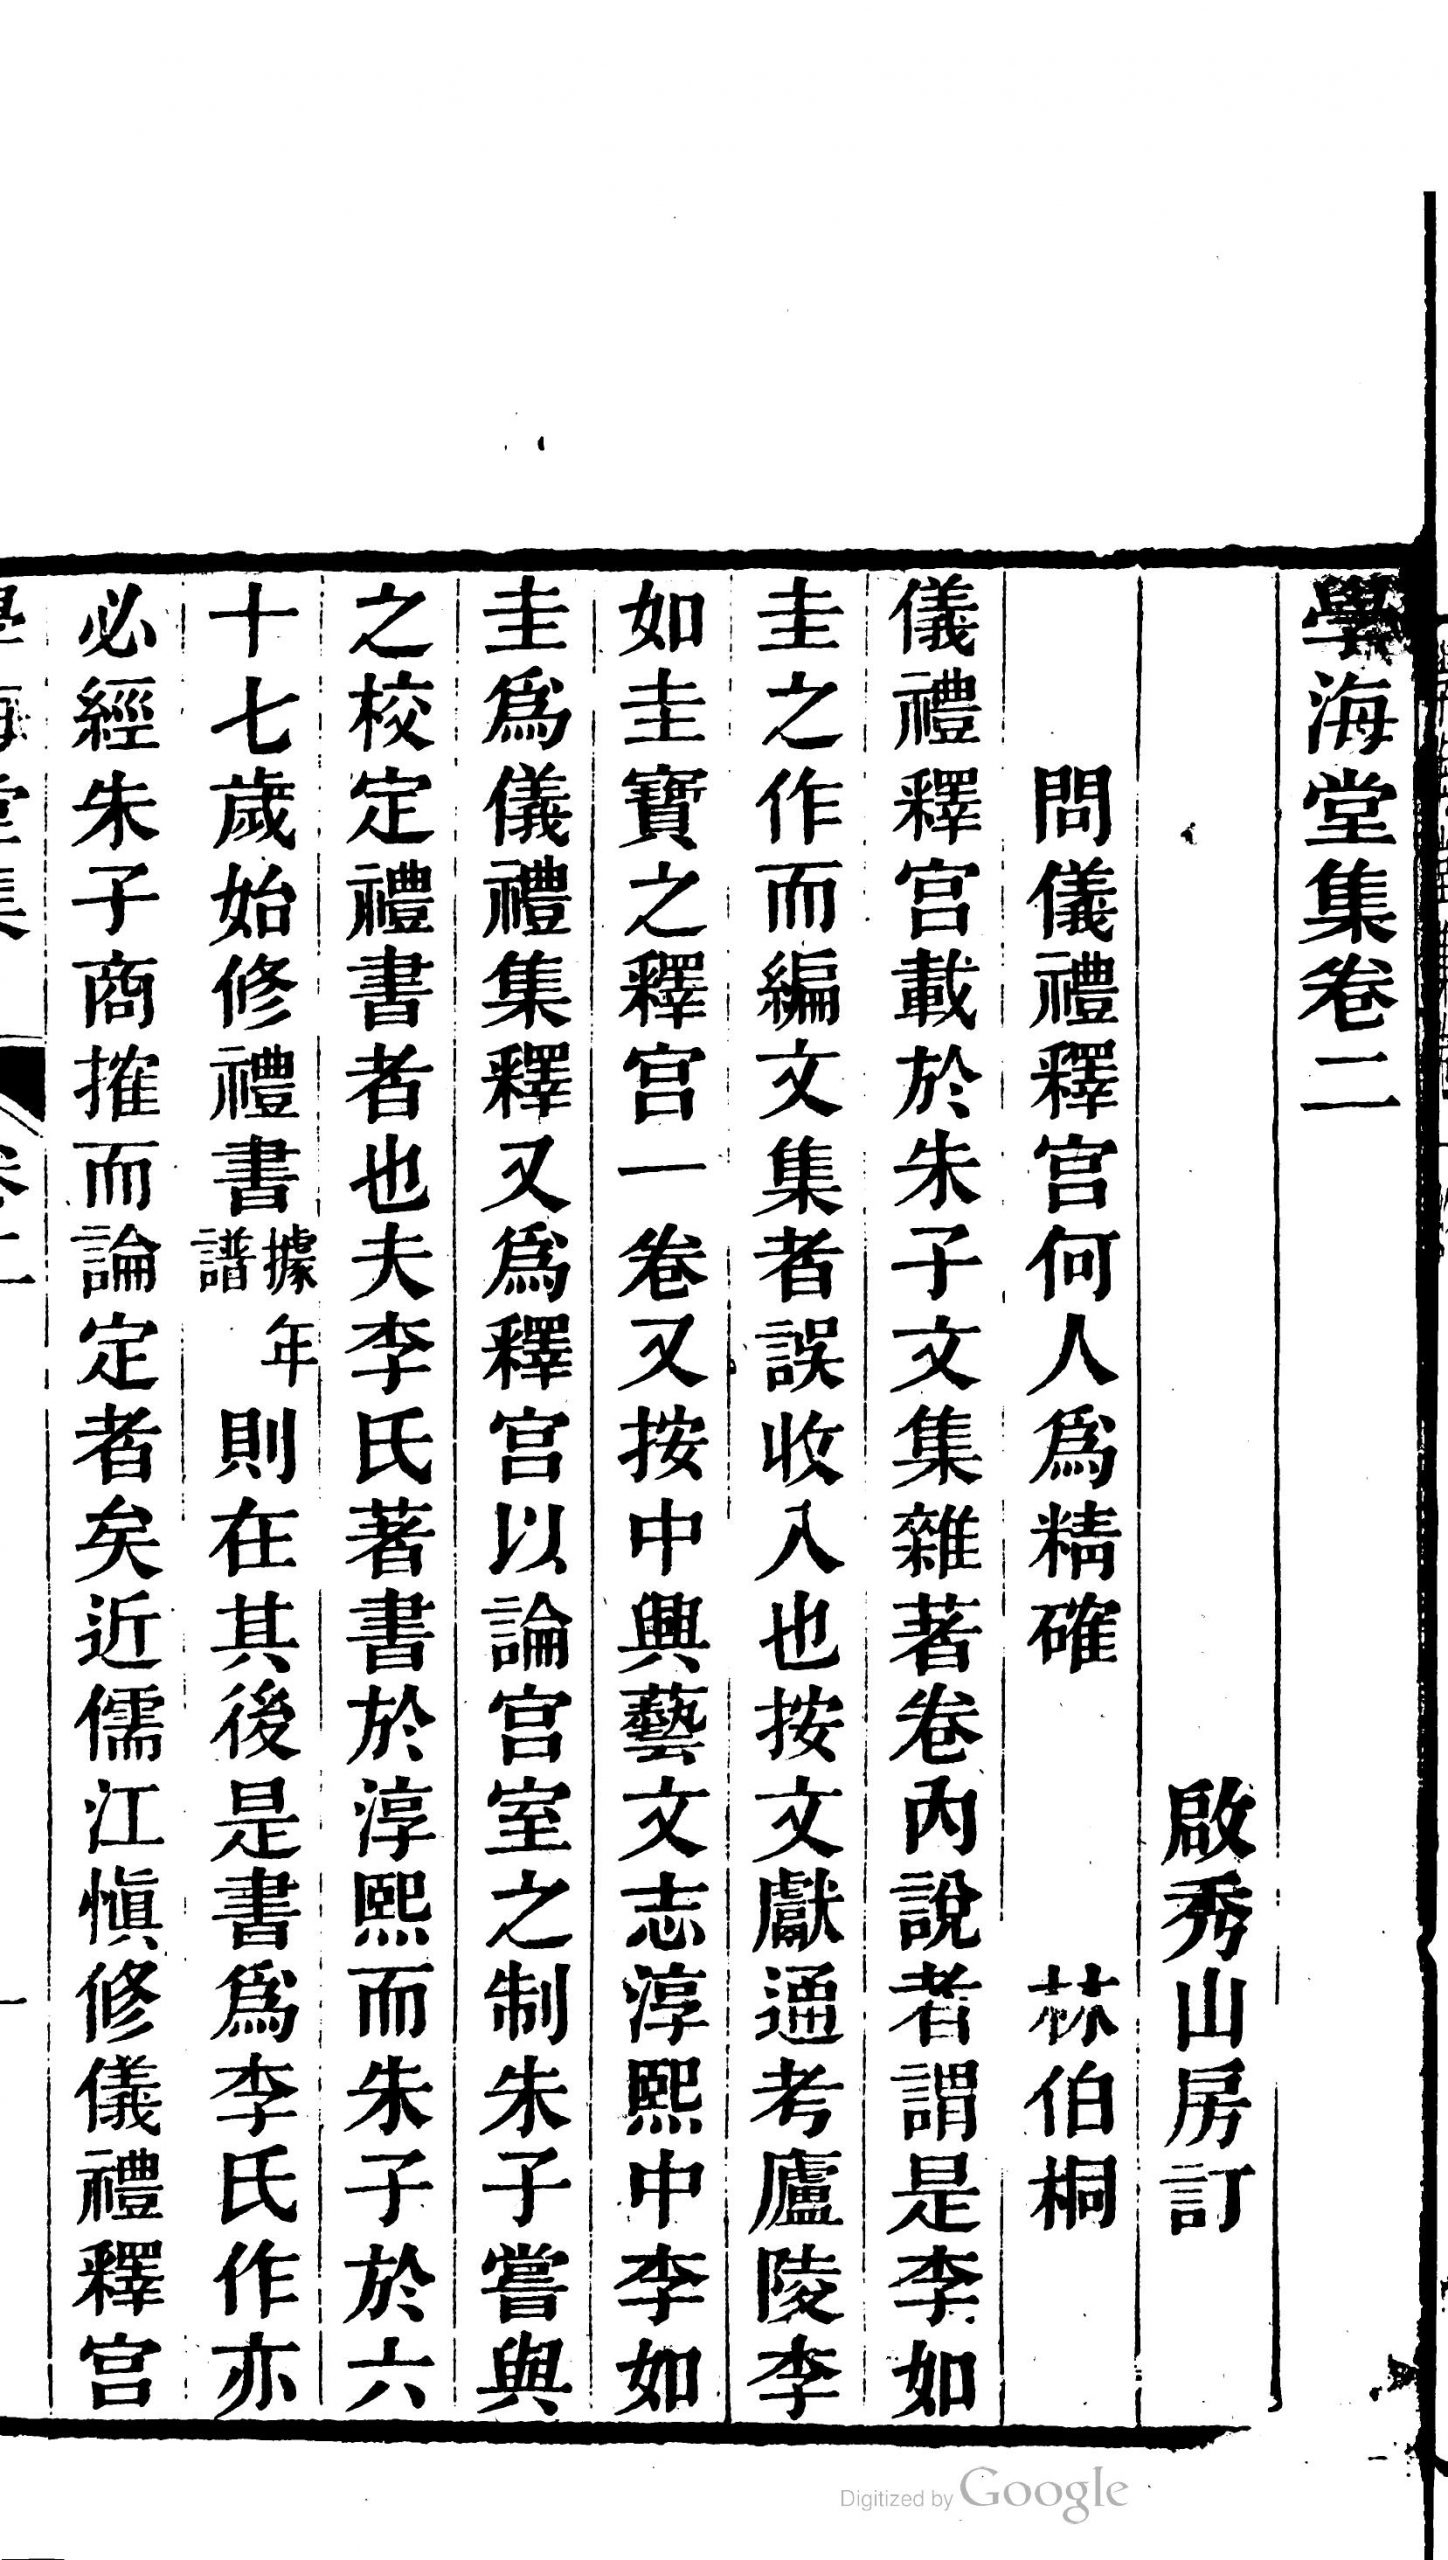 學海堂集卷二
啟秀山房訂
問儀禮釋宮何人爲精確 林伯桐
儀禮釋宮載於朱子文集雜著卷內說者謂是李如
圭之作而編文集者誤收入也按文獻通考廬陵李
如圭寶之釋宮一卷又按中興藝文志淳熙中李如
圭爲儀禮集釋又爲釋宮以論宮室之制朱子嘗與
之校定禮書者也夫李氏著書於淳熙而朱子於六
十七歲始修禮書據年譜則在其後是書爲李氏作亦
必經朱子商搉而論定者矣近儒江愼修儀禮釋宮
Digitized by Google